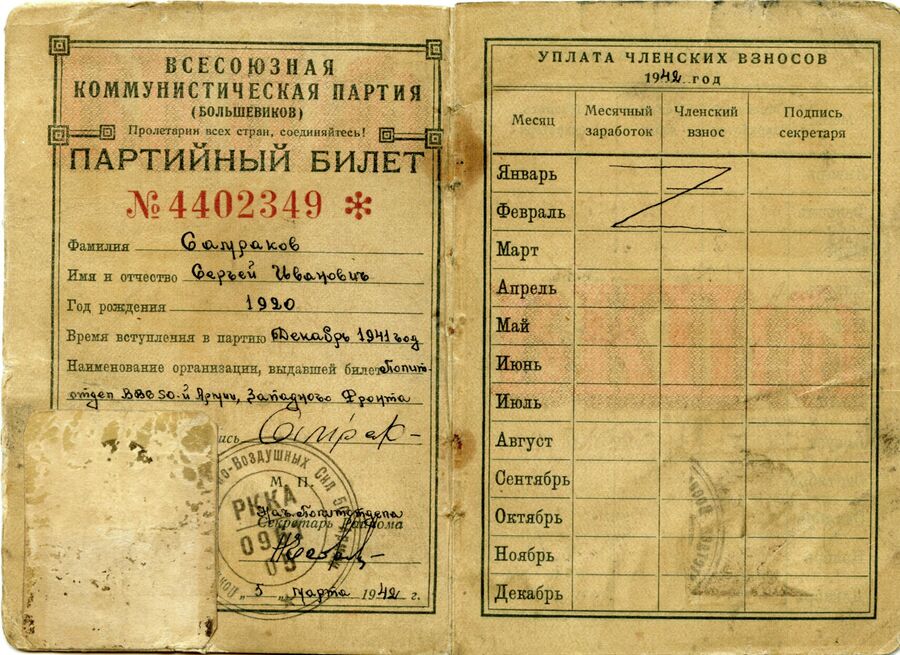 ВСЕСОЮЗНАЯ
КОММУНИСТИЧЕСКАЯ ПАРТИЯ
(БОЛЬШЕВИКОВ)
Пролетарии всех стран, соединяйтесь!
ПАРТИЙНЫЙ БИЛЕТ
№ 4402349 *
Фамилия
Имя и отчество Сергей Иванович
Год рождения 1920
Время вступления в партию Декабрь 1941 год
Наименование организации, выдавшей билет Полит-
отдел ВВС 50-й Армии, Западного Фронта
М. П.
Нач. Политотдела
Секретарь Райкома
"5" марта 1942 г.
о-Воздушных Сил
РККА
УПЛАТА ЧЛЕНСКИХ ВЗНОСОВ
1942 год
Месяц Месячный заработок Членский взнос Подпись секретаря
Январь
Февраль
Март
Апрель
Май
Июнь
Июль
Август
Сентябрь
Октябрь
Ноябрь
Декабрь